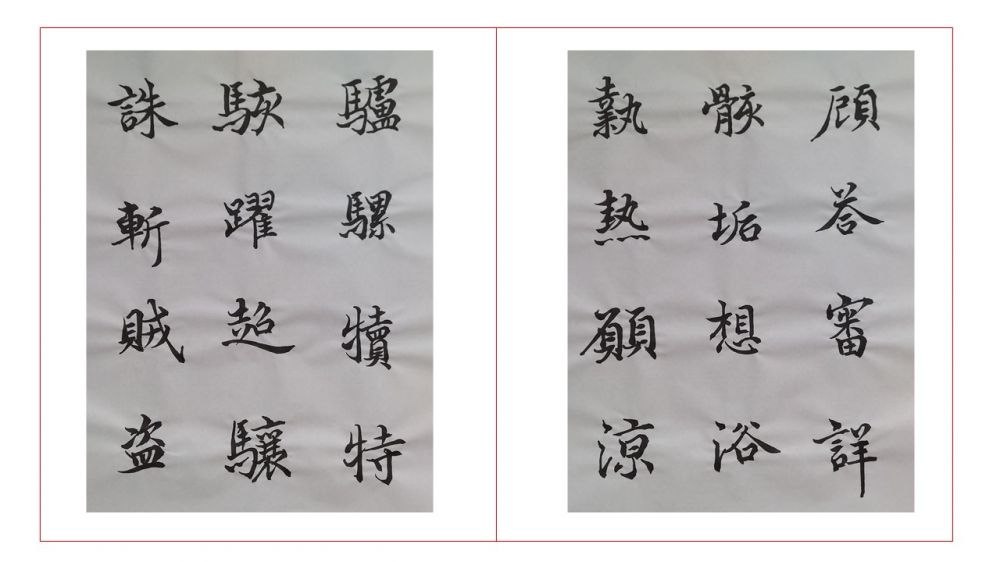 顧荅審詳
骸垢想浴
執熱願涼
驢騾犢特
駭躍超驤
誅斬賊盗